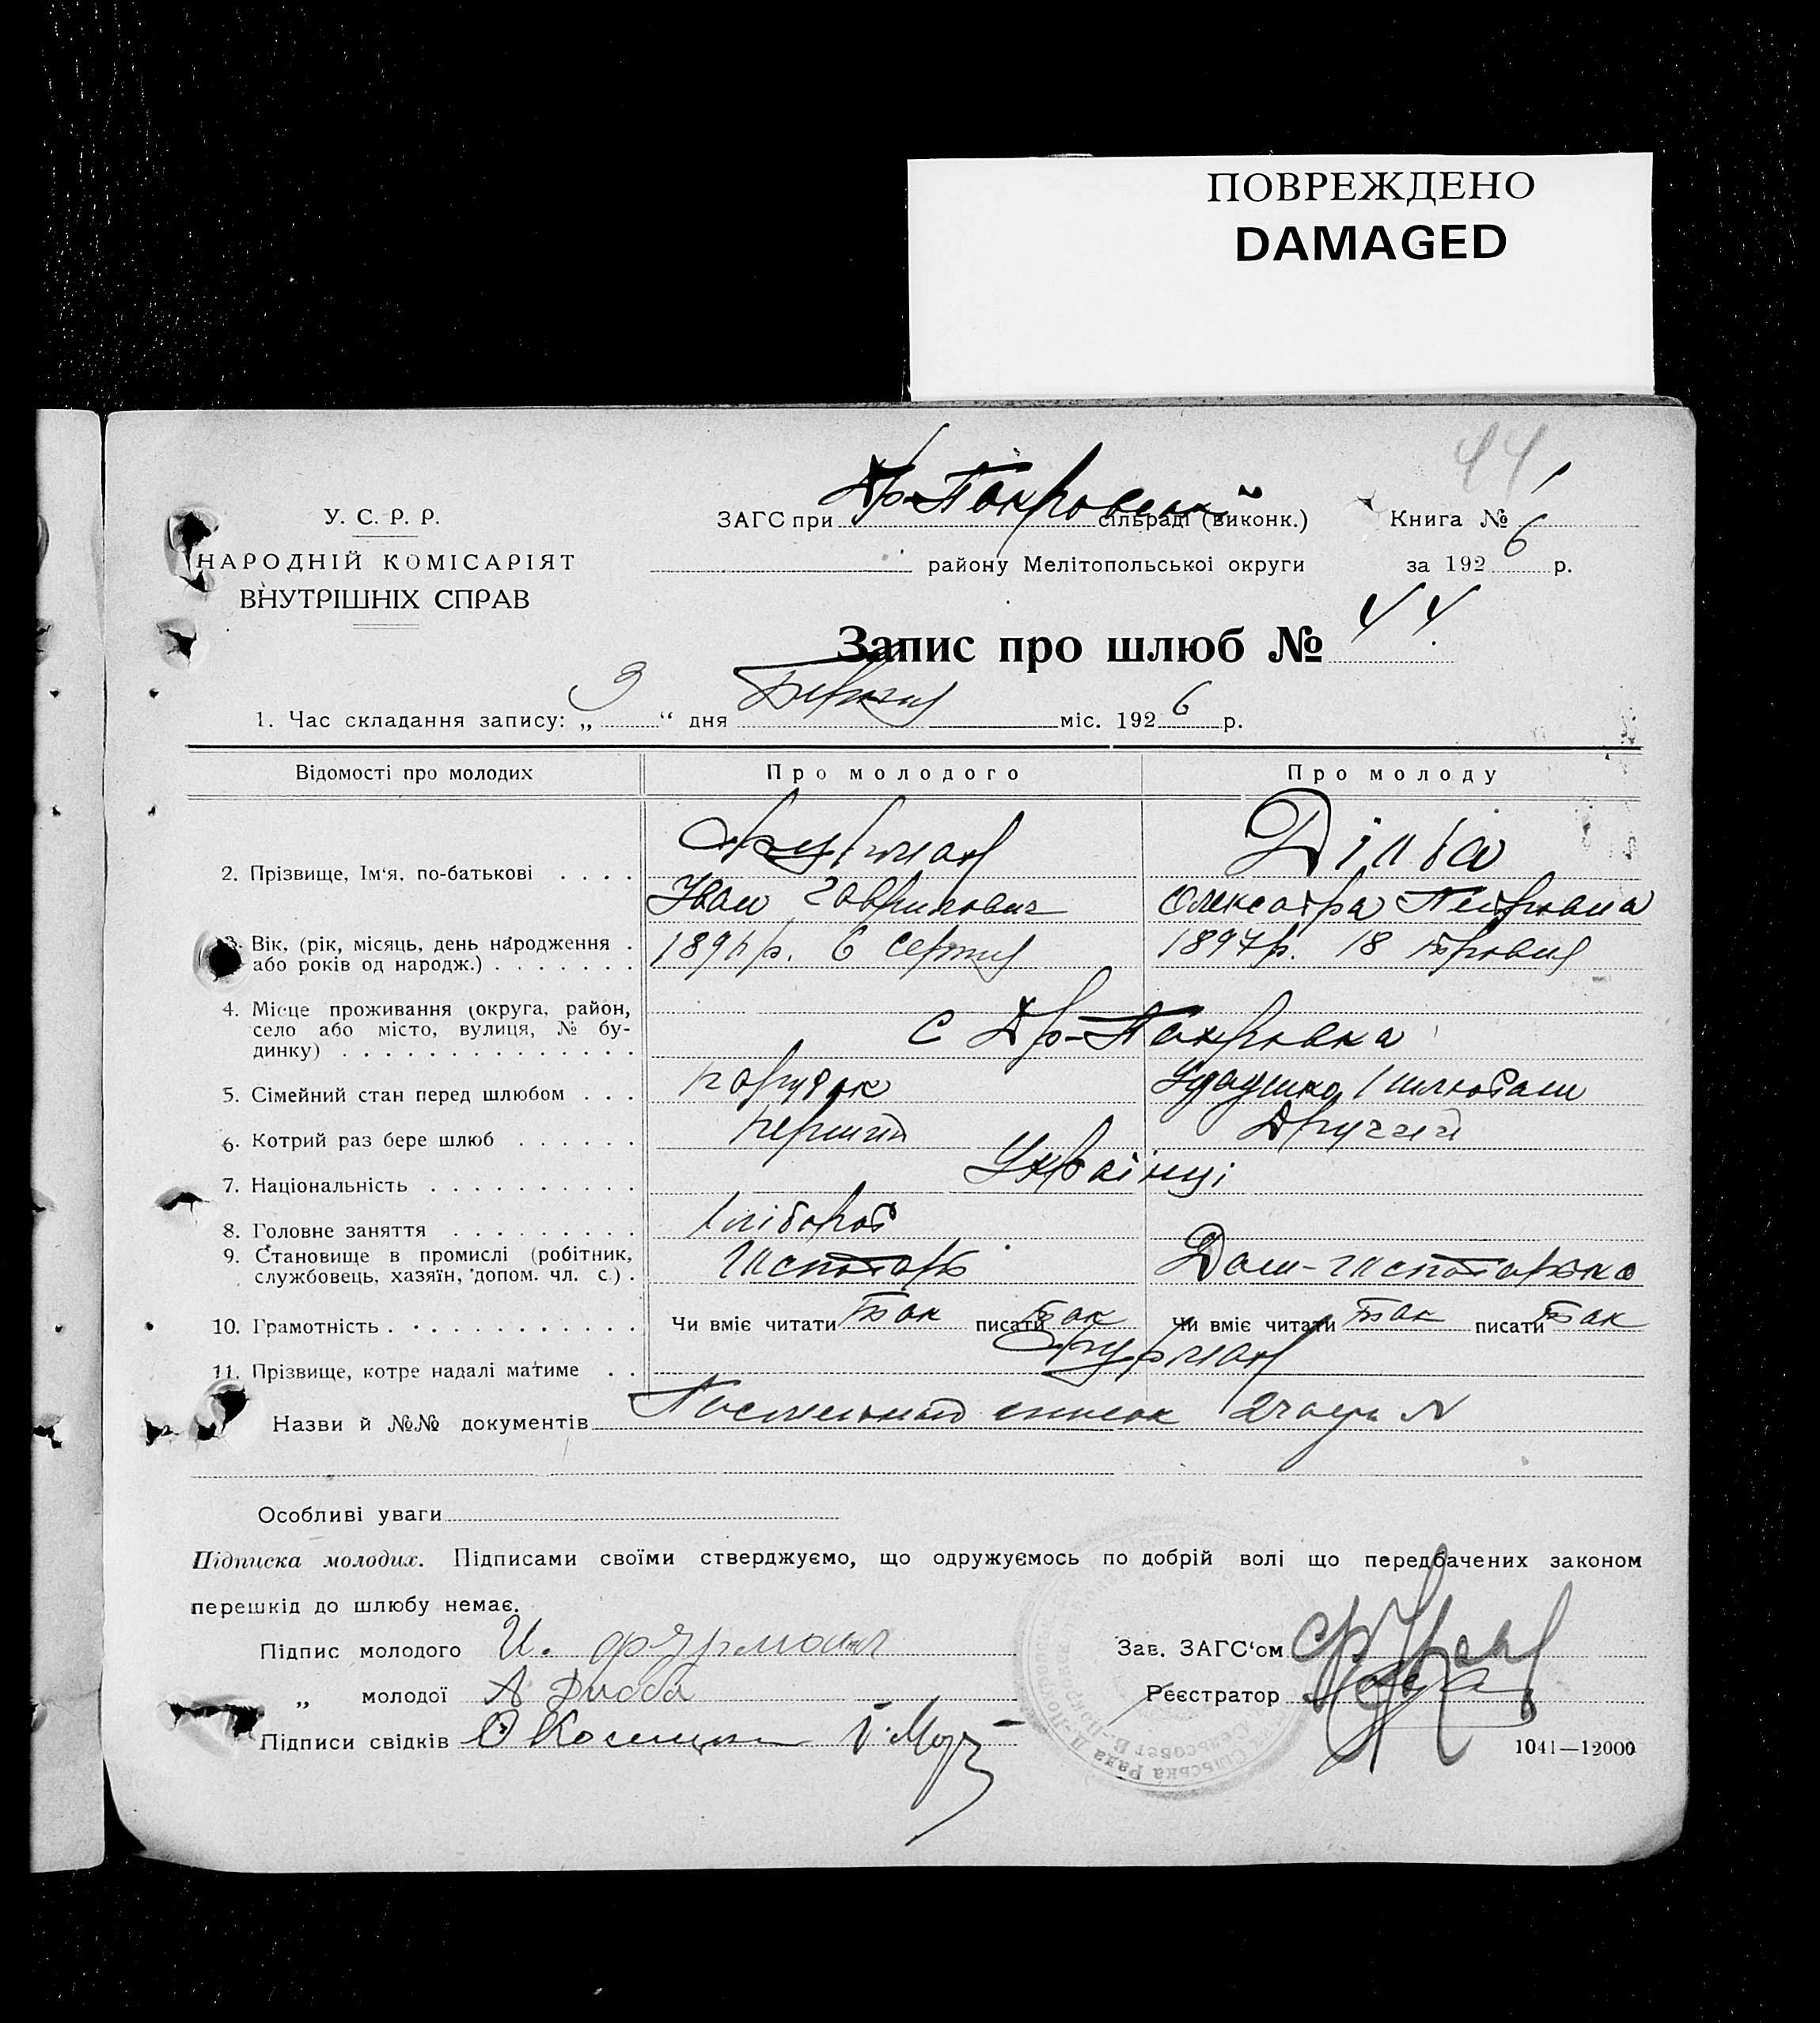 ПОВРЕЖДЕНО
DAMAGED
44
У. С. Р. Р.
НАРОДНІЙ КОМІСАРІЯТ
ВНУТРІШНІХ СПРАВ
ЗАГС при Др-Покровській сільраді (виконк.) Книга №
району Мелітопольської округи за 1926 р.
Запис про шлюб № 44
1. Час складання запису: „3“ дня Березня міс. 1926 р.
Відомості про молодих Про молодого Про молоду
2. Прізвище, Ім‘я, по-батькові Фурман
Іван Гаврилович Олександра Петровна
3. Вік, (рік, місяць, день народження 6 серпня 1897 р. 18 травня
або років од народж.)
4. Місце проживання (округа, район,
село або місто, вулиця, № бу-
динку) с Др-Покровка
5. Сімейний стан перед шлюбом парубок
6. Котрий раз бере шлюб перший Другий
7. Національність Українці
8. Головне заняття хлібороб
9. Становище в промислі (робітник,
службовець, хазяїн, допом. чл. с.) Господарь Дом-господарька
10. Грамотність Чи вміє читати так писати так Чи вміє читати так писати так
11. Прізвище, котре надалі матиме Фурман
Назви й №№ документів список
Особливі уваги
Підписка молодих. Підписами своїми стверджуємо, що одружуємось по добрій волі що передбачених законом
перешкід до шлюбу немає.
Підпис молодого И. Фурман Зав. ЗАГС‘ом
„ молодої А Реєстратор
Підписи свідків
1041—12000